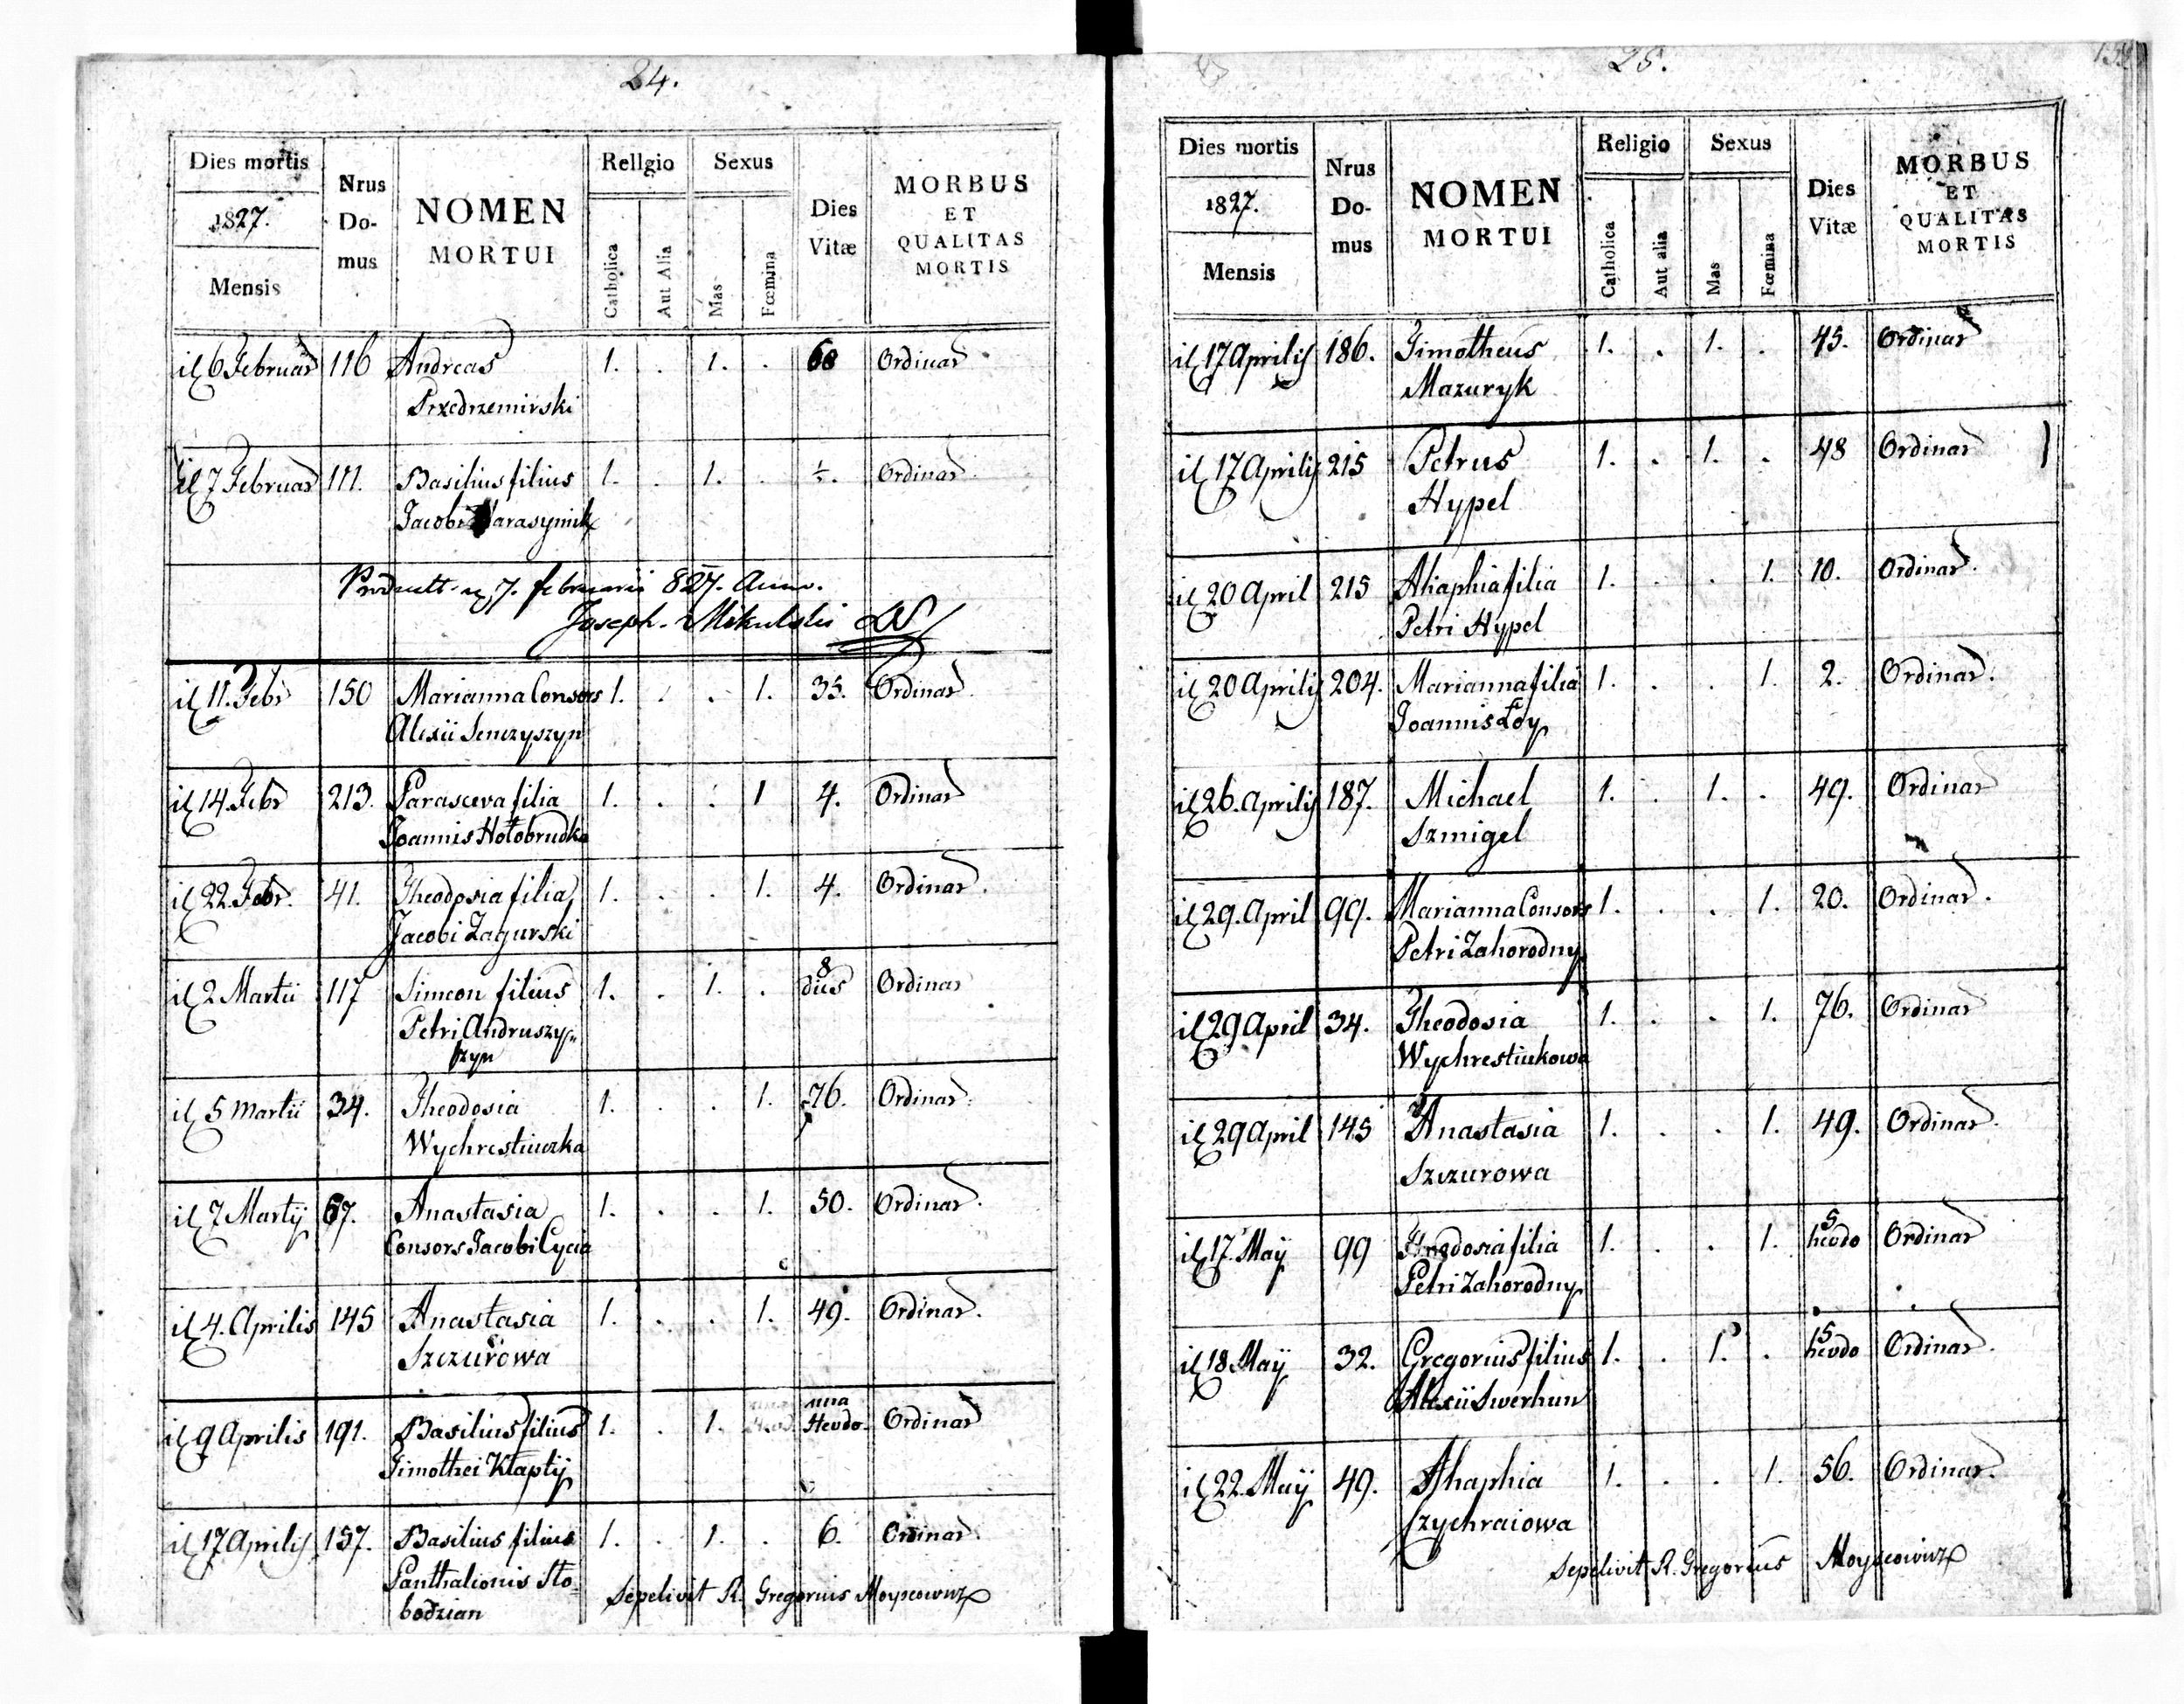 24.
Dies mortis
1827.
Mensis
Nrus
Do-
mus
NOMEN
MORTUI
Religio
Catholica
Aut Alia
Sexus
Mas
Fœmina
Dies
Vitæ
MORBUS
ET
QUALITAS
MORTIS
6 Februar 116 Andreas 1. . 1. . 68 Ordinar
Przedrzemirski
7 Februar 111. Basilius filius 1. . 1. . Ordinar
Jacobi
7. februarii 827.
Joseph. Mikulski
11. Febr 150 Marianna Consors 1. . . 1. 35. Ordinar
Alexii Senczyszyn
14. Febr 213. Parasceva filia 1. . . 1 4. Ordinar
Joannis Hołobrudka
22. Febr. 41. Theodosia filia 1. . . 1. 4. Ordinar.
Jacobi Zagurski
2 Martii 117 Simeon filius 1. . 1. . 8 dies Ordinar
Petri Andruszy=
szyn
5 Martii 34. Theodosia 1. . . 1. 76. Ordinar
Wychrestiuczka
7 Martij 67. Anastasia 1. . . 1. 50. Ordinar.
Consors Jacobi Cycia
4. Aprilis 145 Anastasia 1. . . 1. 49. Ordinar.
Szczurowa
9 Aprilis 191. Basilius filius 1. . 1. una Hevdo. Ordinar
Timothei Kłaptij
17 Aprilis 157. Basilius filius 1. . 1. . 6. Ordinar.
Panthalionis Sło=
bodzian
Sepelivit R. Gregorius Moyseowicz
25.
Dies mortis
1827.
Mensis
Nrus
Do-
mus
NOMEN
MORTUI
Religio
Catholica
Aut alia
Sexus
Mas
Fœmina
Dies
Vitæ
MORBUS
ET
QUALITAS
MORTIS
17 Aprilis 186. Timotheus 1. . 1. . 45. Ordinar
Mazuryk
17 Aprilis 215 Petrus 1. . 1. . 48 Ordinar
Hypel
20 April 215 Ahaphia filia 1. . . 1. 10. Ordinar.
Petri Hypel
20 Aprilis 204. Marianna filia 1. . . 1. 2. Ordinar.
Joannis Łoy
26. Aprilis 187. Michael 1. . 1. . 49. Ordinar
Szmigel
29. April 99. Marianna Consors 1. . . 1. 20. Ordinar.
Petri Zahorodny
29 April 34. Theodosia 1. . . 1. 76. Ordinar
Wychrestiukowa
29 April 145 Anastasia 1. . . 1. 49. Ordinar.
Szczurowa
17. Maij 99 Theodosia filia 1. . . 1. 5 hevdo Ordinar
Petri Zahorodny
18 Maij 32. Gregorius filius 1. . 1. . 15 hevdo Ordinar.
Alexii Swerhun
22. Maij 49. Ahaphia 1. . . 1. 56. Ordinar.
Czychraiowa
Sepelivit R. Gregorius Moyseowicz